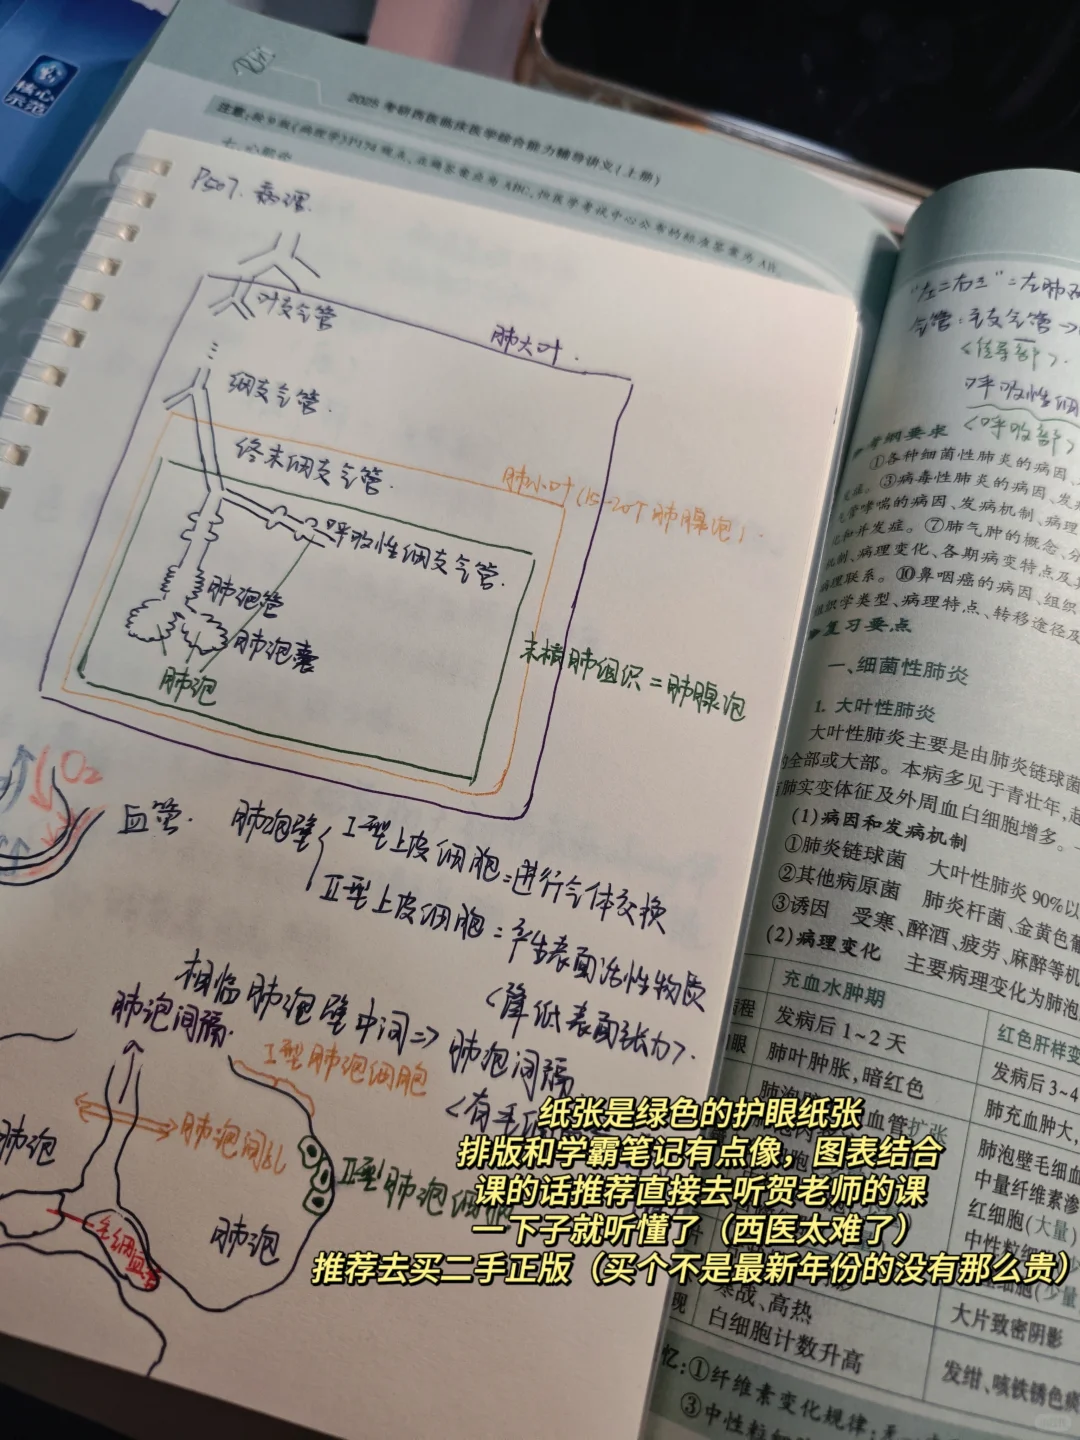 核心
示范
2025 考研西医临床医学综合能力辅导讲义(上册)
P507. 病理.
叶支气管
肺大叶.
细支气管.
终末细支气管.
肺小叶(15-20个肺腺泡).
呼吸性细支气管.
肺泡管
肺泡囊
肺泡
末梢肺组织=肺腺泡
O₂
血管.
肺泡壁
I型上皮细胞=进行气体交换
II型上皮细胞=产生表面活性物质
<降低表面张力>.
相临肺泡壁中间=>肺泡间隔
肺泡间隔.
I型肺泡细胞
肺泡间孔
肺泡
II型肺泡细胞
肺泡
毛细血管
"左二右三"=左肺
气管:主支气管→
<传导部>.
呼吸性细
<呼吸部>
考纲要求
①各种细菌性肺炎的病因、
③病毒性肺炎的病因、发
管哮喘的病因、发病机制、病理
和并发症。⑦肺气肿的概念、分
机制、病理变化、各期病变特点及其
病理联系。⑩鼻咽癌的病因、组织
组织学类型、病理特点、转移途径及
复习要点
一、细菌性肺炎
1. 大叶性肺炎
大叶性肺炎主要是由肺炎链球菌
的全部或大部。本病多见于青壮年,起
肺实变体征及外周血白细胞增多。
(1)病因和发病机制
①肺炎链球菌 大叶性肺炎90%以
②其他病原菌 肺炎杆菌、金黄色葡
③诱因 受寒、醉酒、疲劳、麻醉等机
(2)病理变化 主要病理变化为肺泡
充血水肿期
红色肝样变
发病后1~2天
发病后3~4
肺叶肿胀,暗红色
肺充血肿大,
肺泡壁毛细血
中量纤维素渗
红细胞(大量)
中性粒细
纸张是绿色的护眼纸张
排版和学霸笔记有点像，图表结合
课的话推荐直接去听贺老师的课
一下子就听懂了（西医太难了）
推荐去买二手正版（买个不是最新年份的没有那么贵）
寒战、高热
白细胞计数升高
大片致密阴影
发绀、咳铁锈色痰
忆:①纤维素变化规律: